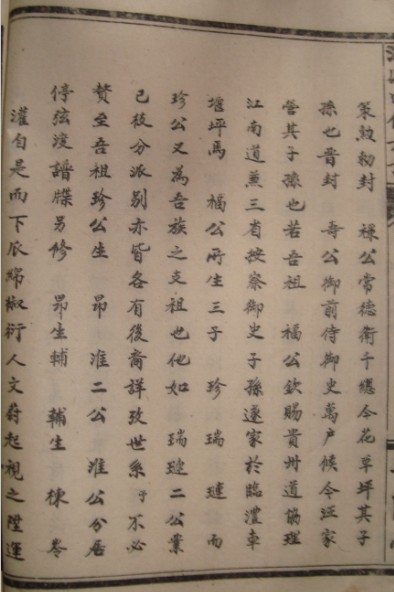 策勲勅封　祿公常德衛千總今花草坪其子
孫也晋封　壽公御前侍御史萬户候今坯家
營其子孫也若吾祖　福公欽賜貴州道協理
江南道兼三省按察御史子孫遂家於臨澧車
堰坪焉　福公所生三子　珍　瑞　璉　而
珍公又為吾族之支祖也他如　瑞璉二公業
已枝分派別亦皆各有後裔詳攷世系予不必
贅至吾祖珍公生　昂　淮二公　淮公分居
停弦渡譜牒另修　昂生輔　輔生　棟　岑
灌自是而下瓜綿椒衍人文蔚起視之陞運